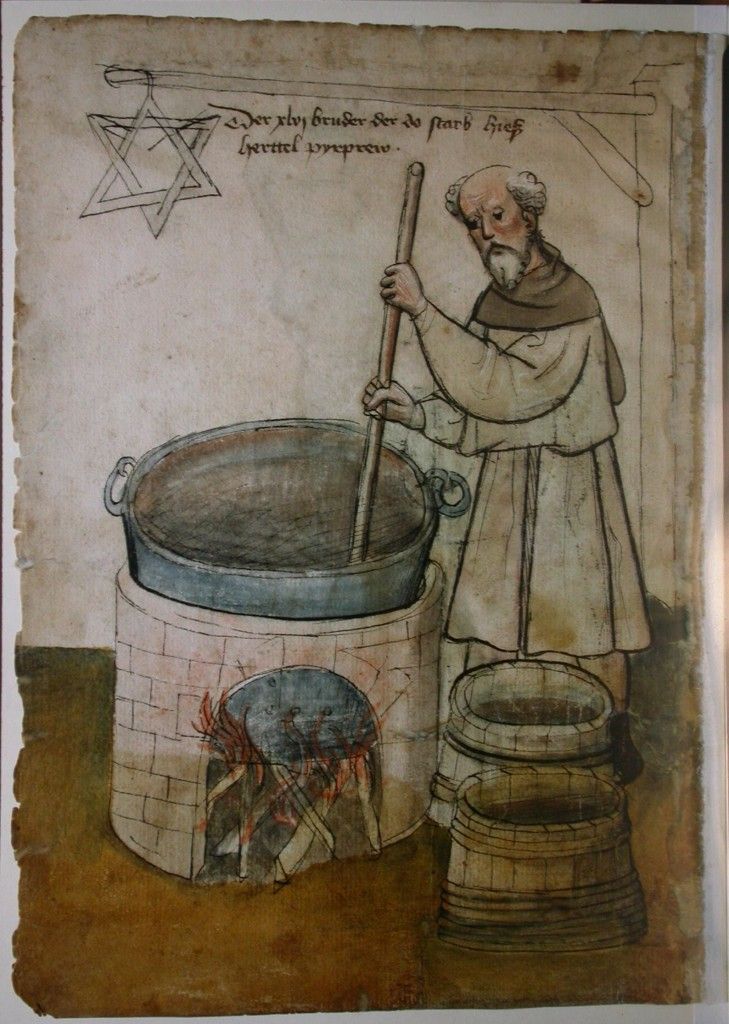 Der xlvj bruder der do starb hieß
herttel pyrprew .